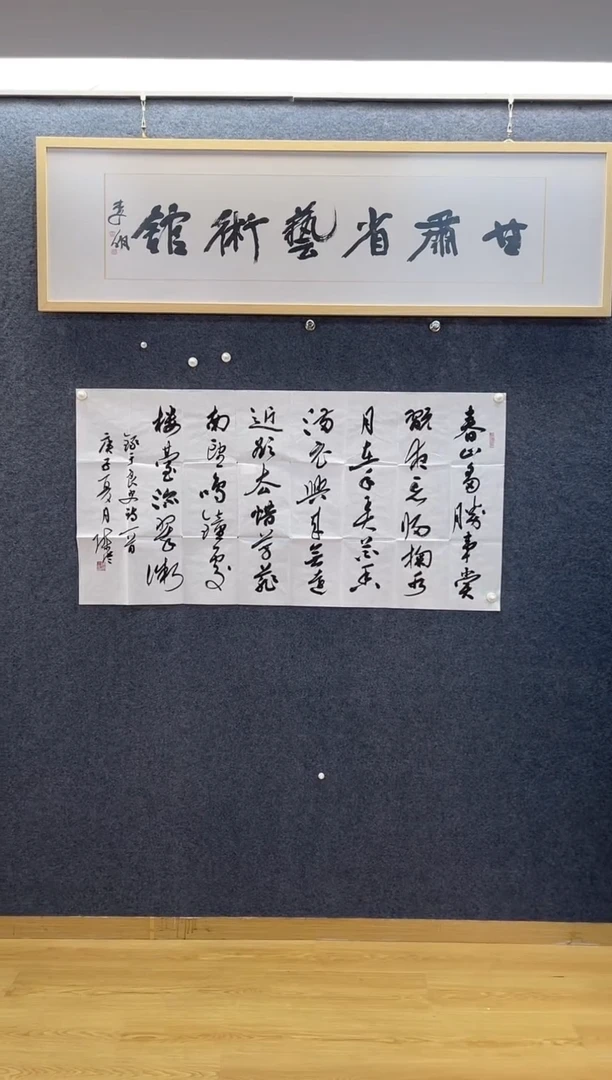 甘肅省藝術館
春山多勝事賞
翫夜忘歸掬水
月在手弄花香
滿衣興來無遠
近欲去惜芳菲
南望鳴鐘處
樓臺深翠微
錄于良史詩一首
庚子夏月